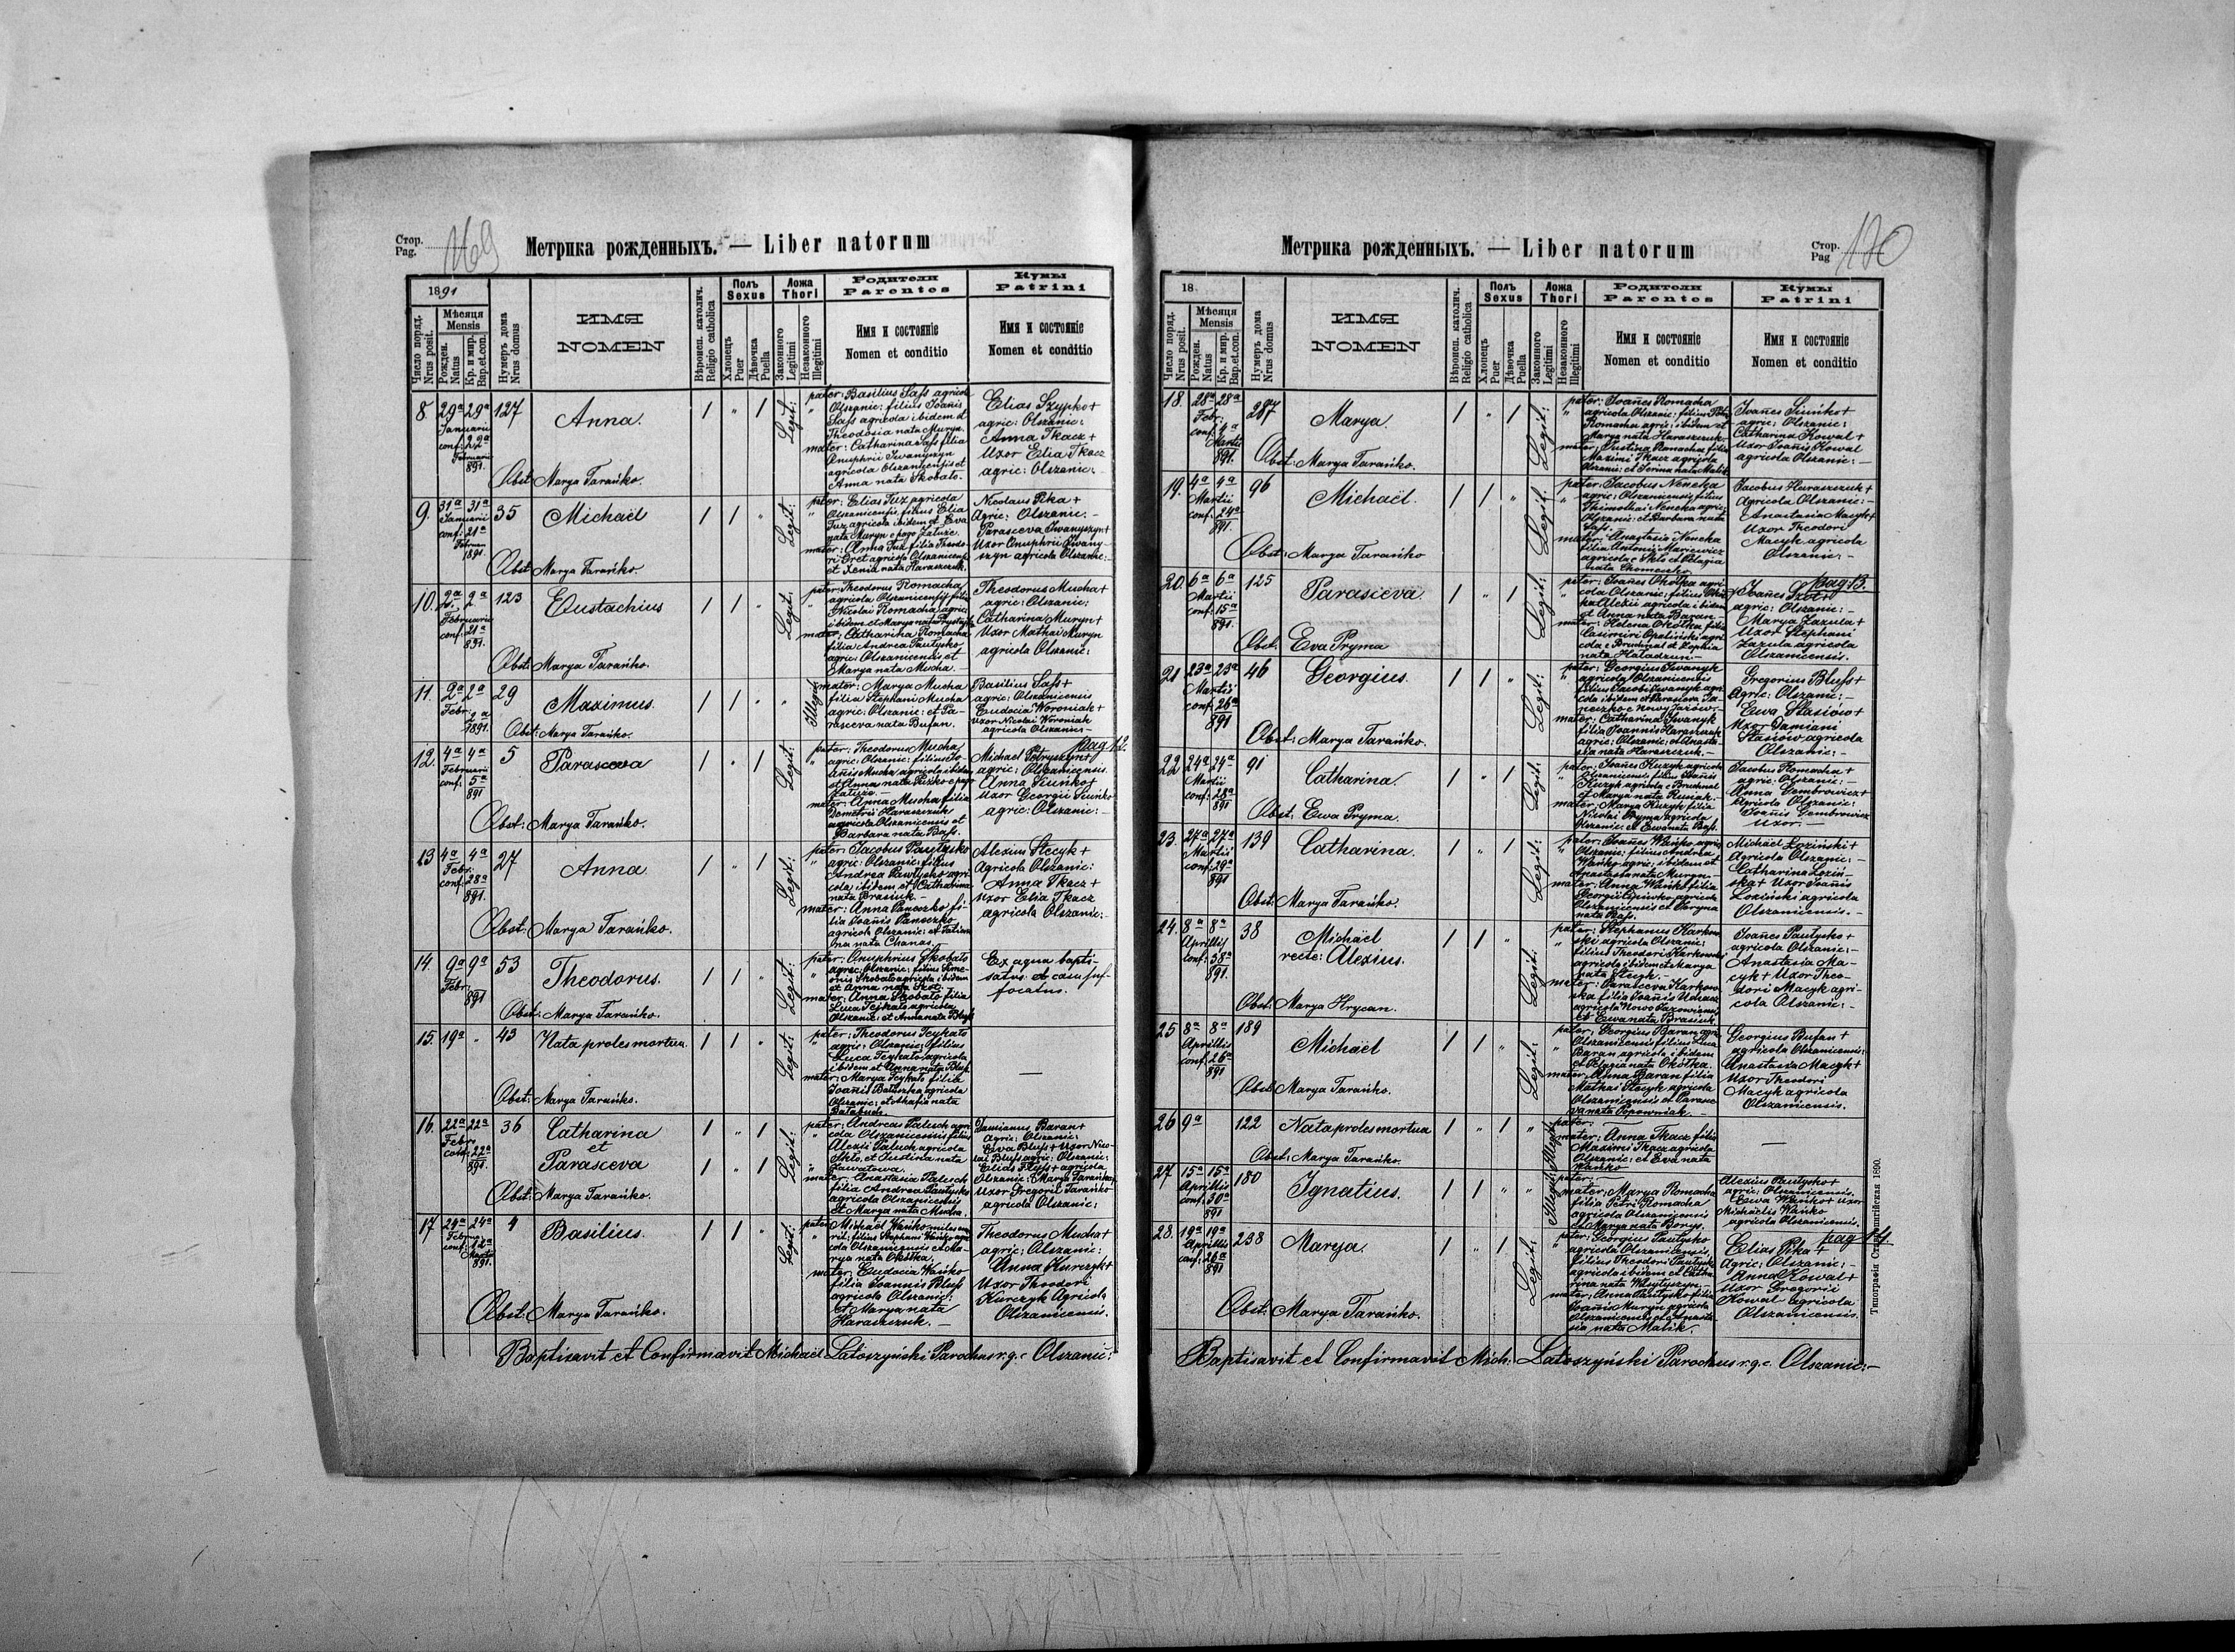 Стор.
Pag. 169
Метрика рожденныхъ. — Liber natorum
1891
Число поряд.
Nrus posit.
Мѣсяця
Mensis
Рожден.
Natus
Кр. и мир.
Bap.et.con.
Нумеръ дома
Nrus domus
ИМЯ
NOMEN
Вѣроисп. католич.
Religio catholica
Полъ
Sexus
Хлопецъ
Puer
Дѣвочка
Puella
Ложа
Thori
Законного
Legitimi
Незаконного
Illegitimi
Родители
Parentes
Имя и состояніе
Nomen et conditio
Кумы
Patrini
Имя и состояніе
Nomen et conditio
8. 29a 29a 127 Anna. 1 " 1 Legit:
Januarii
conf: 22a
Februarii
891.
pater: Basilius Sass agricola
Olszanic: filius Joanis
Sass agricola ibidem et
Theodosia nata Muryn.
mater: Catharina Sass filia
Onuphrii Iwanyszyn
agricola Olszanicensis et
Anna nata Skobato.
Elias Szypko+
agric: Olszanic:
Anna Tkacz +
Uxor Elia Tkacz
agric: Olszanic:
Obst: Marya Tarańko.
9. 31a 31a 35 Michaël 1 1 " Legit:
Januarii
conf: 21a
Februar
1891.
pater: Elias Tuz agricola
Olszanicensis, filius Elia
Tuz agricola ibidem et Eva
nata Muryn e pago Zaluże.
mater: Anna Tuz filia Theodo-
ri Oret agricola Olszanicensis
et Xenia nata Haraszczuk.
Nicolaus Pika +
Agric: Olszanic. -
Parasceva Iwanyszyn+
Uxor Onuphrii Iwany-
szyn agricola Olszanic:
Obst: Marya Tarańko.
10. 2a 2a 123 Eustachius 1 1 " Legit:
Februarii
conf: 21a
891.
pater: Theodorus Romacha
agricola Olszanicensis filius
Nicolai Romacha agric:
ibidem et Marya nata
mater: Catharina Romacha
filia Andrea Pautysko
agric: Olszanicensis et
Marya nata Mucha. -
Theodorus Mucha+
agric: Olszanic:
Catharina Muryn+
Uxor Mathai Muryn
agricola Olszanic:
Obst: Marya Tarańko.
11. 2a 2a 29 Maximus. 1 1 " " Illegit:
Febr:
2a
1891.
mater: Marya Mucha
filia Stephani Mucha
agric: Olszanic: et Pa-
rasceva nata Bufan.
Basilius Sass+
agric: Olszanicensis
Eudocia Woroniak +
Uxor Nicolai Woroniak
agricola Olszanic -
Obst: Marya Tarańko.
12. 4a 4a 5 Parasceva 1 " 1 Legit:
Februarii
conf: 5a
891
pater: Theodorus Mucha
agric: Olszanic: filius Jo-
anis Mucha agricola ibidem
et Anna nata e pago
Zaluże. -
mater: Anna Mucha filia
Demetrii Haraszczuk
agricola Olszanicensis et
Barbara nata Bass.
pag 12.
Michael Petryszyn+
agric: Olszanicensis
Anna Siuńko+
Uxor Georgii Siuńko
agric: Olszanic: -
Obst: Marya Tarańko.
13 4a 4a 27 Anna 1 " 1 Legit:
Febr:
conf: 28a
891.
pater: Jacobus Pautysko
agric: Olszanic: filius
Andrea Pawtysko agri-
cola ibidem et Catharina
nata Brasiuk. -
mater: Anna Paneczko fi-
lia Joanis Paneczko
agricola Olszanic: et Tatian-
na nata Chanas.
Alexius Stecyk +
Agricola Olszanic:
Anna Tkacz +
Uxor Elia Tkacz
agricola Olszanic: -
Obst: Marya Tarańko.
14. 9a 9a 53 Theodorus. 1 1 " Legit:
Febr:
891
pater: Onuphrius Skobato
agric: Olszanic: filius Sime-
onis Skobato agricola ibidem
et Anna nata Szot.
mater: Anna Skobato filia
Luca Tcykało agricola
Olszanic: et Anna nata Bluss
Ex aqua bapti-
satus et casu suf-
focatus.
Obst: Marya Tarańko.
15. 19a " 43 Nata proles mortua. 1 1 " Legit:
pater: Theodorus Tcykało
agric: Olszanic: filius
Luca Tcykało agricola
ibidem et Anna nata Bluss
mater: Marya Tcykało filia
Joanis agricola
Olszanic: et nata
—
Obst: Marya Tarańko.
16. 22a 22a 36 Catharina 1 " 1 Legit:
Febr:
conf: 22a
891.
et
Parasceva 1 " 1
pater: Andreas Paluch agri-
cola Olszanicensis filius
Alexii Paluch agricola
Skło, et Justina nata
mater: Anastasia Paluch
filia Andrea Pautysko
agricola Olszanicensis
et Marya nata Mucha.
Damianus Baran+
Agric: Olszanic:
Eva Bluss+ Uxor Nico-
lai Bluss agric: Olszanic:
Elias Bluss+ agricola
Olszanic: Marya Tarańko+
Uxor Gregorii Tarańko
agricola Olszanic:
Obst: Marya Tarańko.
17 24a 24a 4 Basilius. 1 1 " Legit:
Februar
conf: 12a
Martii
891.
pater: Michaël Wańko
filius Stephani Wańko agri-
cola Olszanicensis et Ma-
rya nata Okołka.
mater: Eudocia Wańko
filia Joannis Bluss
agricola Olszanic:
et Marya nata
Haraszczuk. -
Theodorus Mucha+
agric: Olszanic:
Anna Kurczyk+
Uxor Theodori
Kurczyk Agricola
Olszanicensis.
Obst: Marya Tarańko.
Baptisavit et Confirmavit Michaël Latoszyński Parochus r.g.c. Olszanic:
Метрика рожденныхъ. — Liber natorum
Стор.
Pag 170
18
Число поряд.
Nrus posit.
Мѣсяця
Mensis
Рожден.
Natus
Кр. и мир.
Bap.et.con.
Нумеръ дома
Nrus domus
ИМЯ
NOMEN
Вѣроисп. католич.
Religio catholica
Полъ
Sexus
Хлопецъ
Puer
Дѣвочка
Puella
Ложа
Thori
Законного
Legitimi
Незаконного
Illegitimi
Родители
Parentes
Имя и состояніе
Nomen et conditio
Кумы
Patrini
Имя и состояніе
Nomen et conditio
18. 28a 28a Marya. 1 " 1 Legit:
Febr:
conf: 4a
Martii
891.
pater: Joanes Romacha
agricola Olszanic: filius Petri
Romacha agric: ibidem et
Marya nata Haraszczuk.
mater: Justina Romacha filia
Maximi Tkacz agricola
Olszanic: et nata Malik.
Joanes Siuńko+
agric: Olszanic:
Catharina Kowal +
Uxor Joanis Kowal
agricola Olszanic: -
Obst: Marya Tarańko.
19. 4a 4a 96 Michaël. 1 1 " Legit:
Martii
conf: 24a
891.
pater: Jacobus Neneka
agric: Olszanicensis, filius
Thimothai Neneka agric:
Olszanic: et Barbara nata
Sass.
mater: Anastasia Neneka
filia Antonii Mariewicz
agricola e Skło et Pelagia
nata
Jacobus Haraszczuk+
Agricola Olszanic: -
Anastasia Macyk+
Uxor Theodori
Macyk agricola
Olszanic: -
Obst: Marya Tarańko
20. 6a 6a 125 Parasceva 1 " 1 Legit:
Martii
conf: 15a
891.
pater: Joanes Okołka agri-
cola Olszanic: filius Okoł-
ka Alexii agricola ibidem
et Anna nata Baran -
mater: Helena Okołka filia
Casimiri Opaliński agri-
cola e Bruchnal et Sophia
nata Haladzun -
pag 13.
Joanes Szot+
agric: Olszanic: -
Marya Zazula+
Uxor Stephani
Zazula agricola
Olszanicensis.
Obst: Eva Pryma
21 23a 23a 46 Georgius. 1 1 " Legit:
Martii
conf: 26a
891
pater: Georgius Iwanyk
agricola Olszanicensis
filius Jacobi Iwanyk agri-
cola ibidem et Parasceva Pa-
neczko e Nowy Jażów.
mater: Catharina Iwanyk
filia Joannis Haraszczuk
agric: Olszanic: et Anasta-
sia nata Haraszczuk. -
Gregorius Bluss+
Agric: Olszanic: -
Ewa Stasiów+
Uxor Damiani
Stasiów agricola
Olszanic: -
Obst: Marya Tarańko.
22 24a 24a 91 Catharina. 1 " 1 Legit:
Martii
conf: 28a
891
pater: Joanes Kuzyk agricola
Olszanicensis filius Joanis
Kuzyk agricola e Bruchnal
et Marya nata Rusiak.
mater: Marya Kuzyk filia
Nicolai Pryma agricola
Olszanic: et Ewa nata Bass.
Jacobus Romacha +
agric: Olszanic: -
Anna Dembrowicz+
Agricola Olszanic:
Joanis Dembrowicz
Uxor -
Obst: Ewa Pryma.
23. 27a 27a 139 Catharina. 1 " 1 Legit:
Martii
conf: 29a
891
pater: Joanes Wańko agric:
Olszanic: filius Andrea
Wańko agric: ibidem et
Anastasia nata Muryn -
mater: Anna Wańko filia
Georgii agricola
Olszanicensis et Maryna
nata Bass.
Michaël Łoziński+
Agricola Olszanic: -
Catharina Łoziń-
ska+ Uxor Joanis
Łoziński agricola
Olszanicensis. -
Obst: Marya Tarańko.
24. 8a 8a 38 Michaël 1 1 " Legit:
recte: Alexius.
Aprillis
conf:
891.
pater: Stephanus Karkow-
ski agricola Olszanic:
filius Theodori Karkowski
agricola ibidem et Marya
nata Stecyk. -
mater: Parasceva Karkow-
ska filia Joanis
agricola Nowo Jazowiensis
et Ewa nata Brasiuk.
Joanes Pautysko+
agricola Olszanic: -
Anastasia Ma-
cyk+ Uxor Theo-
dori Macyk agri-
cola Olszanic: -
Obst: Marya Hrycan.
25 8a 8a 189 Michaël 1 1 " Legit:
Aprillis
conf: 26a
891
pater: Georgius Baran agric
Olszanicensis filius Luca
Baran agricola ibidem
et Pelagia nata Okołka.
mater: Anna Baran filia
Mathai Stecyk agricola
Olszanicensis et Parasce-
va nata Popowniak. -
Georgius Bufan+
agricola Olszanicensis:
Anastasia Macyk+
Uxor Theodori
Macyk agricola
Olszanicensis.
Obst: Marya Tarańko.
26 9a 122 Nata proles mortua 1 " 1 " Illegit:
pater: —
mater: Anna Tkacz filia
Maximi Tkacz agricola
Olszanic: et Eva nata
Wańko
—
Obst: Marya Tarańko.
27. 15a 15a 180 Ignatius. 1 1 " " Illegit:
Aprillis
conf: 30a
891
pater: —
mater: Marya Romacha
filia Petri Romacha
agricola Olszanicensis
et Marya nata Borys.
Alexius Pautysko+
agric: Olszanicensis.
Ewa Wańko+ Uxor
Michaelis Wańko
agricola Olszanicensis.
28. 19a 19a 238 Marya. 1 " 1 Legit:
Aprillis
conf: 26a
891
pater: Georgius Pautysko
agricola Olszanicensis,
filius Theodori Pautysko
agricola ibidem et Catha-
rina nata
mater: Anna Pautysko filia
Joanis Muryn agricola
Olszanicensis et Anasta-
sia nata Malik.
pag 14.
Elias Pika +
Agric: Olszanic: -
Anna Kowal+
Uxor Gregorii
Kowal agricola
Olszanicensis.
Obst: Marya Tarańko.
Baptisavit et Confirmavit Mich: Latoszyński Parochus r.g.c. Olszanic: -
Типографія Ставропигійская 1890.